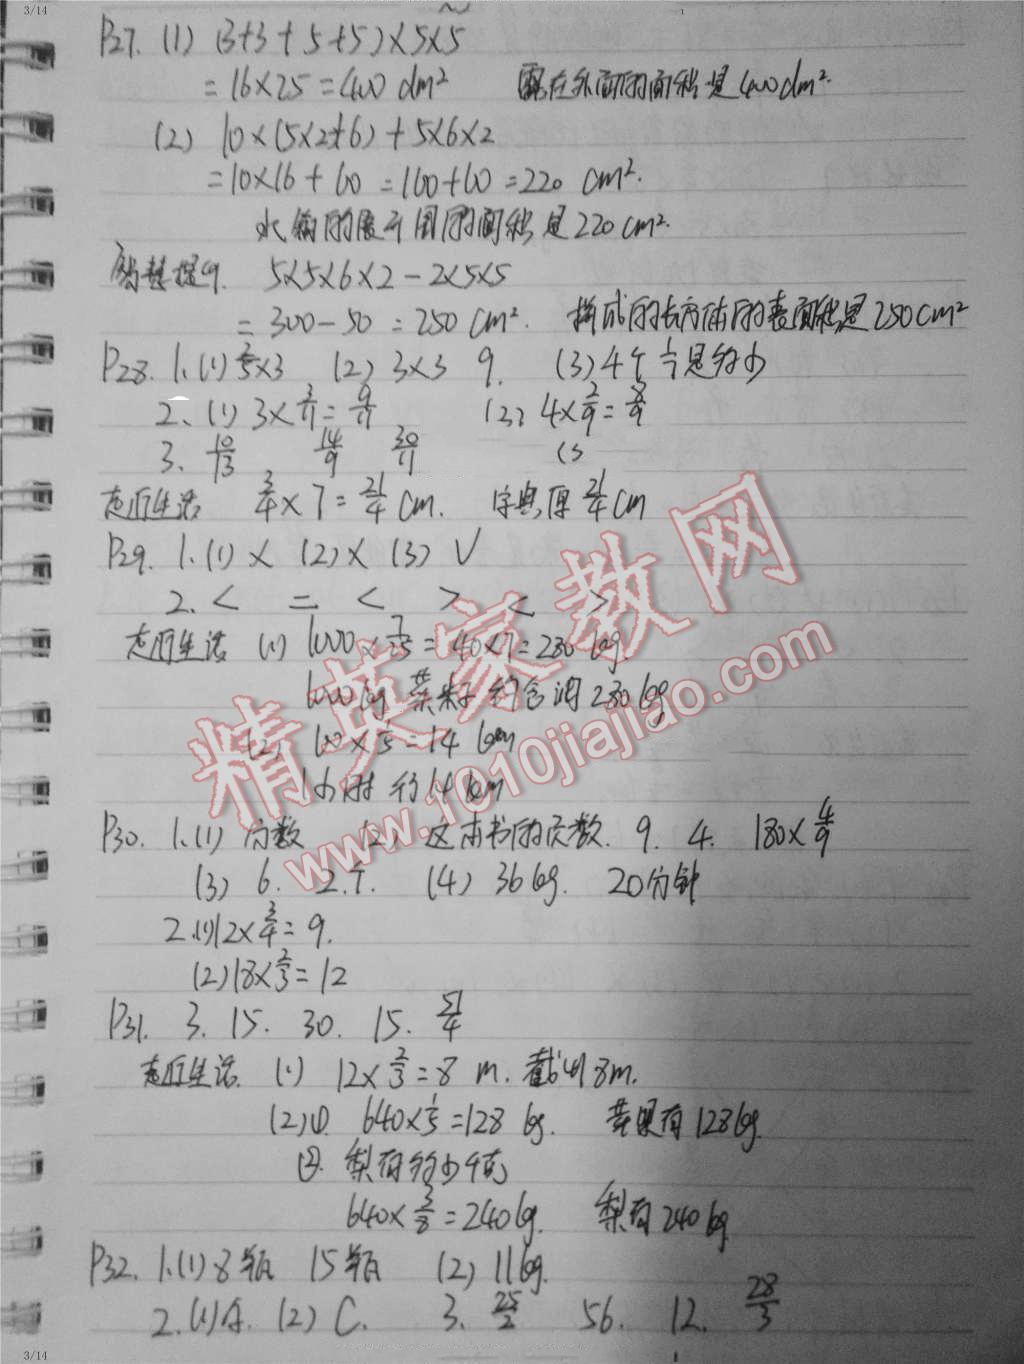 3/14
P27. (1) (3+3+5+5)×5×5
=16×25=400 dm² 露在外面的面积是400dm².
(2) 10×(5×2+6)+5×6×2
=10×16+60=160+60=220 cm².
的面积是220cm².
智慧提升. 5×5×6×2-2×5×5
=300-50=250 cm². 拼成的长方体的表面积是250cm²
P28. 1.(1) 2/5×3 (2) 3×3 9. (3) 4个 是多少
2.(1) 3×3/11=9/11 (2) 4×2/9=8/9
3. 10/13 14/9 30/11
走向生活 3/4×7=21/4 cm. 字典厚21/4cm
P29. 1.(1) × (2) × (3) √
2. < = < > < >
走向生活 (1) 1000×7/25=40×7=280kg
1000kg菜籽约含油280kg
(2) =14 km
1小时行14km
P30. 1.(1) 分数 (2) 这本书的页数. 9. 4. 180×4/9
(3) 6. 2.千. (4) 36kg. 20分钟
2.(1)12×3/4=9.
(2)18×2/3=12
P31. 3. 15. 30. 15. 51/4
走向生活. (1) 12×2/3=8 m. 截收8m.
(2)①. 640×1/5=128 kg. 苹果有128kg.
②. 梨有多少千克
640×3/8=240kg. 梨有240kg.
P32. 1.(1)8瓶 15瓶 (2) 11kg.
2.(1)A. (2) C. 3. 25/2 56. 12. 28/3
精英家教网
www.1010jiajiao.com
3/14